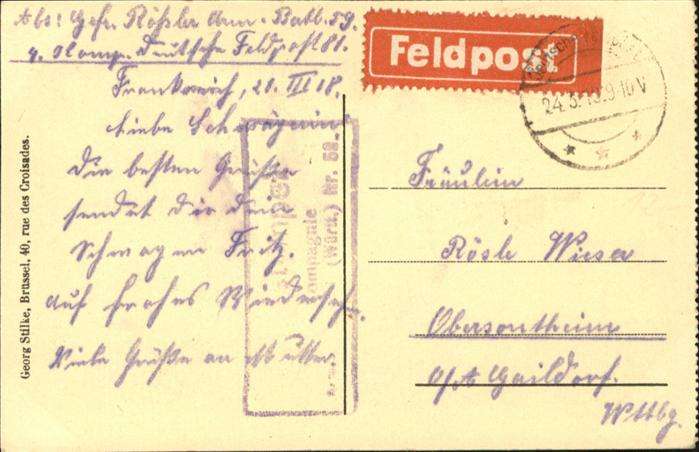 Abs: Gefr. Rößler Arm. Batl. 59.
4. Komp. Deutsche Feldpost 81.
Feldpost
Frankreich, 21. III 18.
24.3.18.9-10V
Liebe Schwägerin
Die besten Grüße
sendet Dir dein
Schwager Fritz.
Auf frohes Wiederseh.
Viele Grüße an Mutter.
Fräulein
Rösle Wieser
Obersontheim
O/A Gaildorf.
Wttbg.
Georg Stilke, Brüssel, 40, rue des Croisades.
ompagnie
(Württ.) Nr. 52.